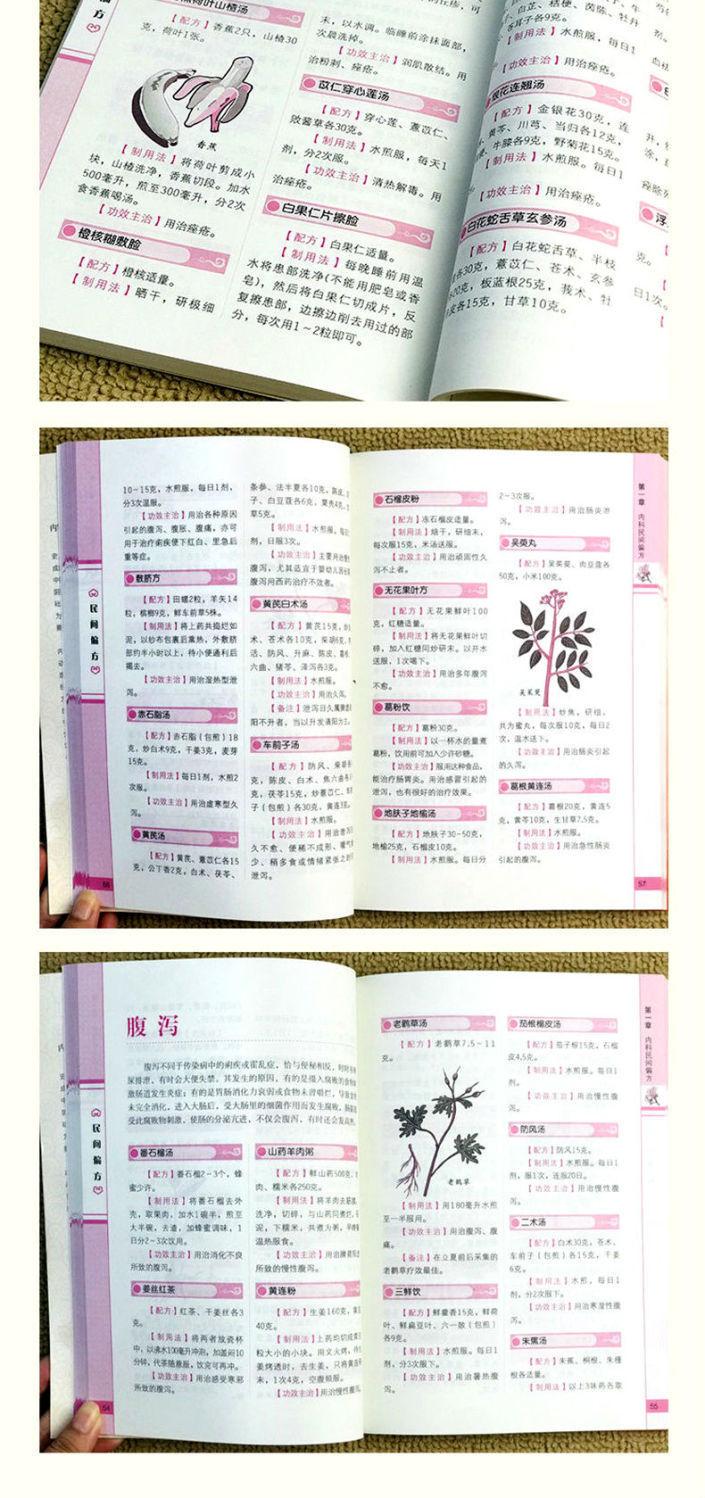 偏方
蕉荷叶山楂汤
【配方】香蕉2只，山楂30
克，荷叶1张。
香蕉
【制用法】将荷叶剪成小
块，山楂洗净，香蕉切段。加水
500毫升，煎至300毫升，分2次
食香蕉喝汤。
【功效主治】用治痤疮。
橙核糊敷脸
【配方】橙核适量。
【制用法】晒干，研极细
末，以水调。临睡前涂抹面部，
次晨洗掉。
【功效主治】润肌散结。用
治粉刺、痤疮。
苡仁穿心莲汤
【配方】穿心莲、薏苡仁、
败酱草各30克。
【制用法】水煎服，每天1
剂，分2次服。
【功效主治】清热解毒。用
治痤疮。
白果仁片擦脸
【配方】白果仁适量。
【制用法】每晚睡前用温
水将患部洗净(不能用肥皂或香
皂)，然后将白果仁切成片，反
复擦患部，边擦边削去用过的部
分，每次用1～2粒即可。
子、白芷、桔梗、茵陈、牡丹
【制用法】水煎服，每日1
【功效主治】用治痤疮。
银花连翘汤
【配方】金银花30克，连
黄芩、川芎、当归各12克，
牛膝各9克，野菊花15克。
【制用法】水煎服。每日1
【功效主治】用治痤疮。
白花蛇舌草玄参汤
【配方】白花蛇舌草、半枝
各30克，薏苡仁、苍术、玄参
20克，板蓝根25克，莪术、牡
皮各15克，甘草10克。
民间偏方
10～15克，水煎服，每日1剂，
分3次温服。
【功效主治】用治各种原因
引起的腹泻、腹胀、腹痛，亦可
用于治疗痢疾便下红白、里急后
重等症。
敷脐方
【配方】田螺2粒，羊矢14
粒，槟榔9克，鲜车前草5株。
【制用法】将上药共捣烂如
泥，以纱布包裹后熏热，外敷脐
部约半小时以上，待小便通利后
揭去。
【功效主治】用治湿热型泄
泻。
赤石脂汤
【配方】赤石脂(包煎)18
克，炒白术9克，干姜3克，麦芽
15克。
【制用法】每日1剂，水煎2
次服。
【功效主治】用治虚寒型久
泻。
黄芪汤
【配方】黄芪、薏苡仁各15
克，公丁香2克，白术、茯苓、
56
条参、法半夏各10克，陈皮
子、白豆蔻各6克，粟壳4克
草5克。
【制用法】水煎服。每日
剂，日服3次。
【功效主治】主要用治慢
腹泻，尤其适宜于婴幼儿因长
腹泻用西药治疗不效者。
黄芪白术汤
【配方】黄芪15克，
术、苍术各10克，柴胡6克，
活、防风、升麻、陈皮、葛根
六曲、猪苓、泽泻各3克。
【制用法】水煎服。
【功效主治】用治久泻。
【备注】泄泻日久属黄
阳不升者，当以升发清阳为
车前子汤
【配方】防风、柴胡各
克，陈皮、白术、焦六曲各
克，茯苓15克，炒薏苡仁、
子(包煎)各30克，黄连3克
【制用法】水煎服。
【功效主治】用治
久不愈、便稀不成形、嗳气
少、稍多食或情绪紧张之
泄泻。
石榴皮粉
【配方】冻石榴皮适量。
【制用法】焙干，研细末，
每次服15克，米汤送服。
【功效主治】用治顽固性久
泻不止者。
无花果叶方
【配方】无花果鲜叶100
克，红糖适量。
【制用法】将无花果鲜叶切
碎，加入红糖同炒研末。以开水
送服，1次喝下。
【功效主治】用治多年腹泻
不愈。
葛粉饮
【配方】葛粉30克。
【制用法】以一杯水的量煮
葛粉，饮用前可加入少许砂糖。
【功效主治】服用这种食品，
能治疗肠胃炎。用治感冒引起的
泄泻，也有很好的治疗效果。
地肤子地榆汤
【配方】地肤子30～50克，
地榆25克，石榴皮10克。
【制用法】水煎服。每日分
2～3次服。
【功效主治】用治肠炎泄
泻。
吴萸丸
【配方】吴茱萸、肉豆蔻各
50克，小米100克。
吴茱萸
【制用法】炒焦，研细，
共为蜜丸，每次服10克，每日2
次，温水送下。
【功效主治】用治肠炎引起
的久泻。
葛根黄连汤
【配方】葛根20克，黄连5
克，黄芩10克，生甘草7.5克。
【制用法】水煎服。
【功效主治】用治急性肠炎
引起的腹泻。
第一章 内科民间偏方
57
民间偏方
腹泻
腹泻不同于传染病中的痢疾或霍乱症，恰与便秘相反，时时
尿排泄，有时会大便失禁。其发生的原因，有的是摄入腐败的食物
激肠道发生炎症；有的是胃肠消化力衰弱或食物未曾嚼烂，导致食物
未完全消化，进入大肠后，受大肠里的细菌作用而发生腐败，肠
受此腐败物刺激，使肠的分泌亢进，不仅会腹泻，有时还会发高热。
番石榴汤
【配方】番石榴2～3个，蜂
蜜少许。
【制用法】将番石榴去外
壳，取果肉，加水1碗半，煎至
大半碗，去渣，加蜂蜜调味，1
日分2～3次饮用。
【功效主治】用治消化不良
所致的腹泻。
姜丝红茶
【配方】红茶、干姜丝各3
克。
【制用法】将两者放瓷杯
中，以沸水100毫升冲泡，加盖闷10
分钟，代茶随意服，饮完可再冲。
【功效主治】用治感受寒邪
所致的腹泻。
54
山药羊肉粥
【配方】鲜山药500克，
肉、糯米各250克。
【制用法】将羊肉去筋膜
洗净，切碎，与山药同煮烂，
泥，下糯米，共煮为粥，早晚
温热服食。
【功效主治】用治脾肾阳
所致的慢性腹泻。
黄连粉
【配方】生姜160克，黄
40克。
【制用法】上药均切成黄豆
粒大小的小块。用文火烤，待生
姜烤透时，去生姜，只将黄连
末，1次4克，空腹频服。
【功效主治】用治慢性腹泻。
老鹳草汤
【配方】老鹳草7.5～11
克。
老鹳草
【制用法】用180毫升水煎
至一半服用。
【功效主治】用治腹泻、腹
痛。
【备注】在立夏前后采集的
老鹳草疗效最佳。
三鲜饮
【配方】鲜藿香15克，鲜荷
叶、鲜扁豆叶、六一散(包煎)
各9克。
【制用法】水煎服。每日1
剂，分3次服下。
【功效主治】用治暑热腹
泻。
茄根榴皮汤
【配方】茄子根15克，石榴
皮4.5克。
【制用法】水煎服。每日1
剂。
【功效主治】用治慢性腹
泻。
防风汤
【配方】防风15克。
【制用法】水煎服。每日1
剂，服1次，连服20日。
【功效主治】用治慢性腹
泻。
二术汤
【配方】白术30克，苍术、
车前子(包煎)各15克，干姜
6克。
【制用法】水煎，每日1
剂，分2次服下。
【功效主治】用治寒湿性腹
泻。
朱蕉汤
【配方】朱蕉、桐根、朱槿
根各适量。
【制用法】以上3味药各取
第一章 内科民间偏方
55